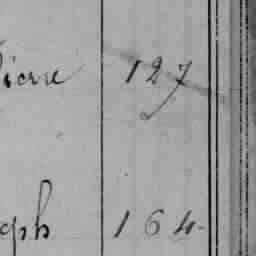 Pierre 127
eph 164